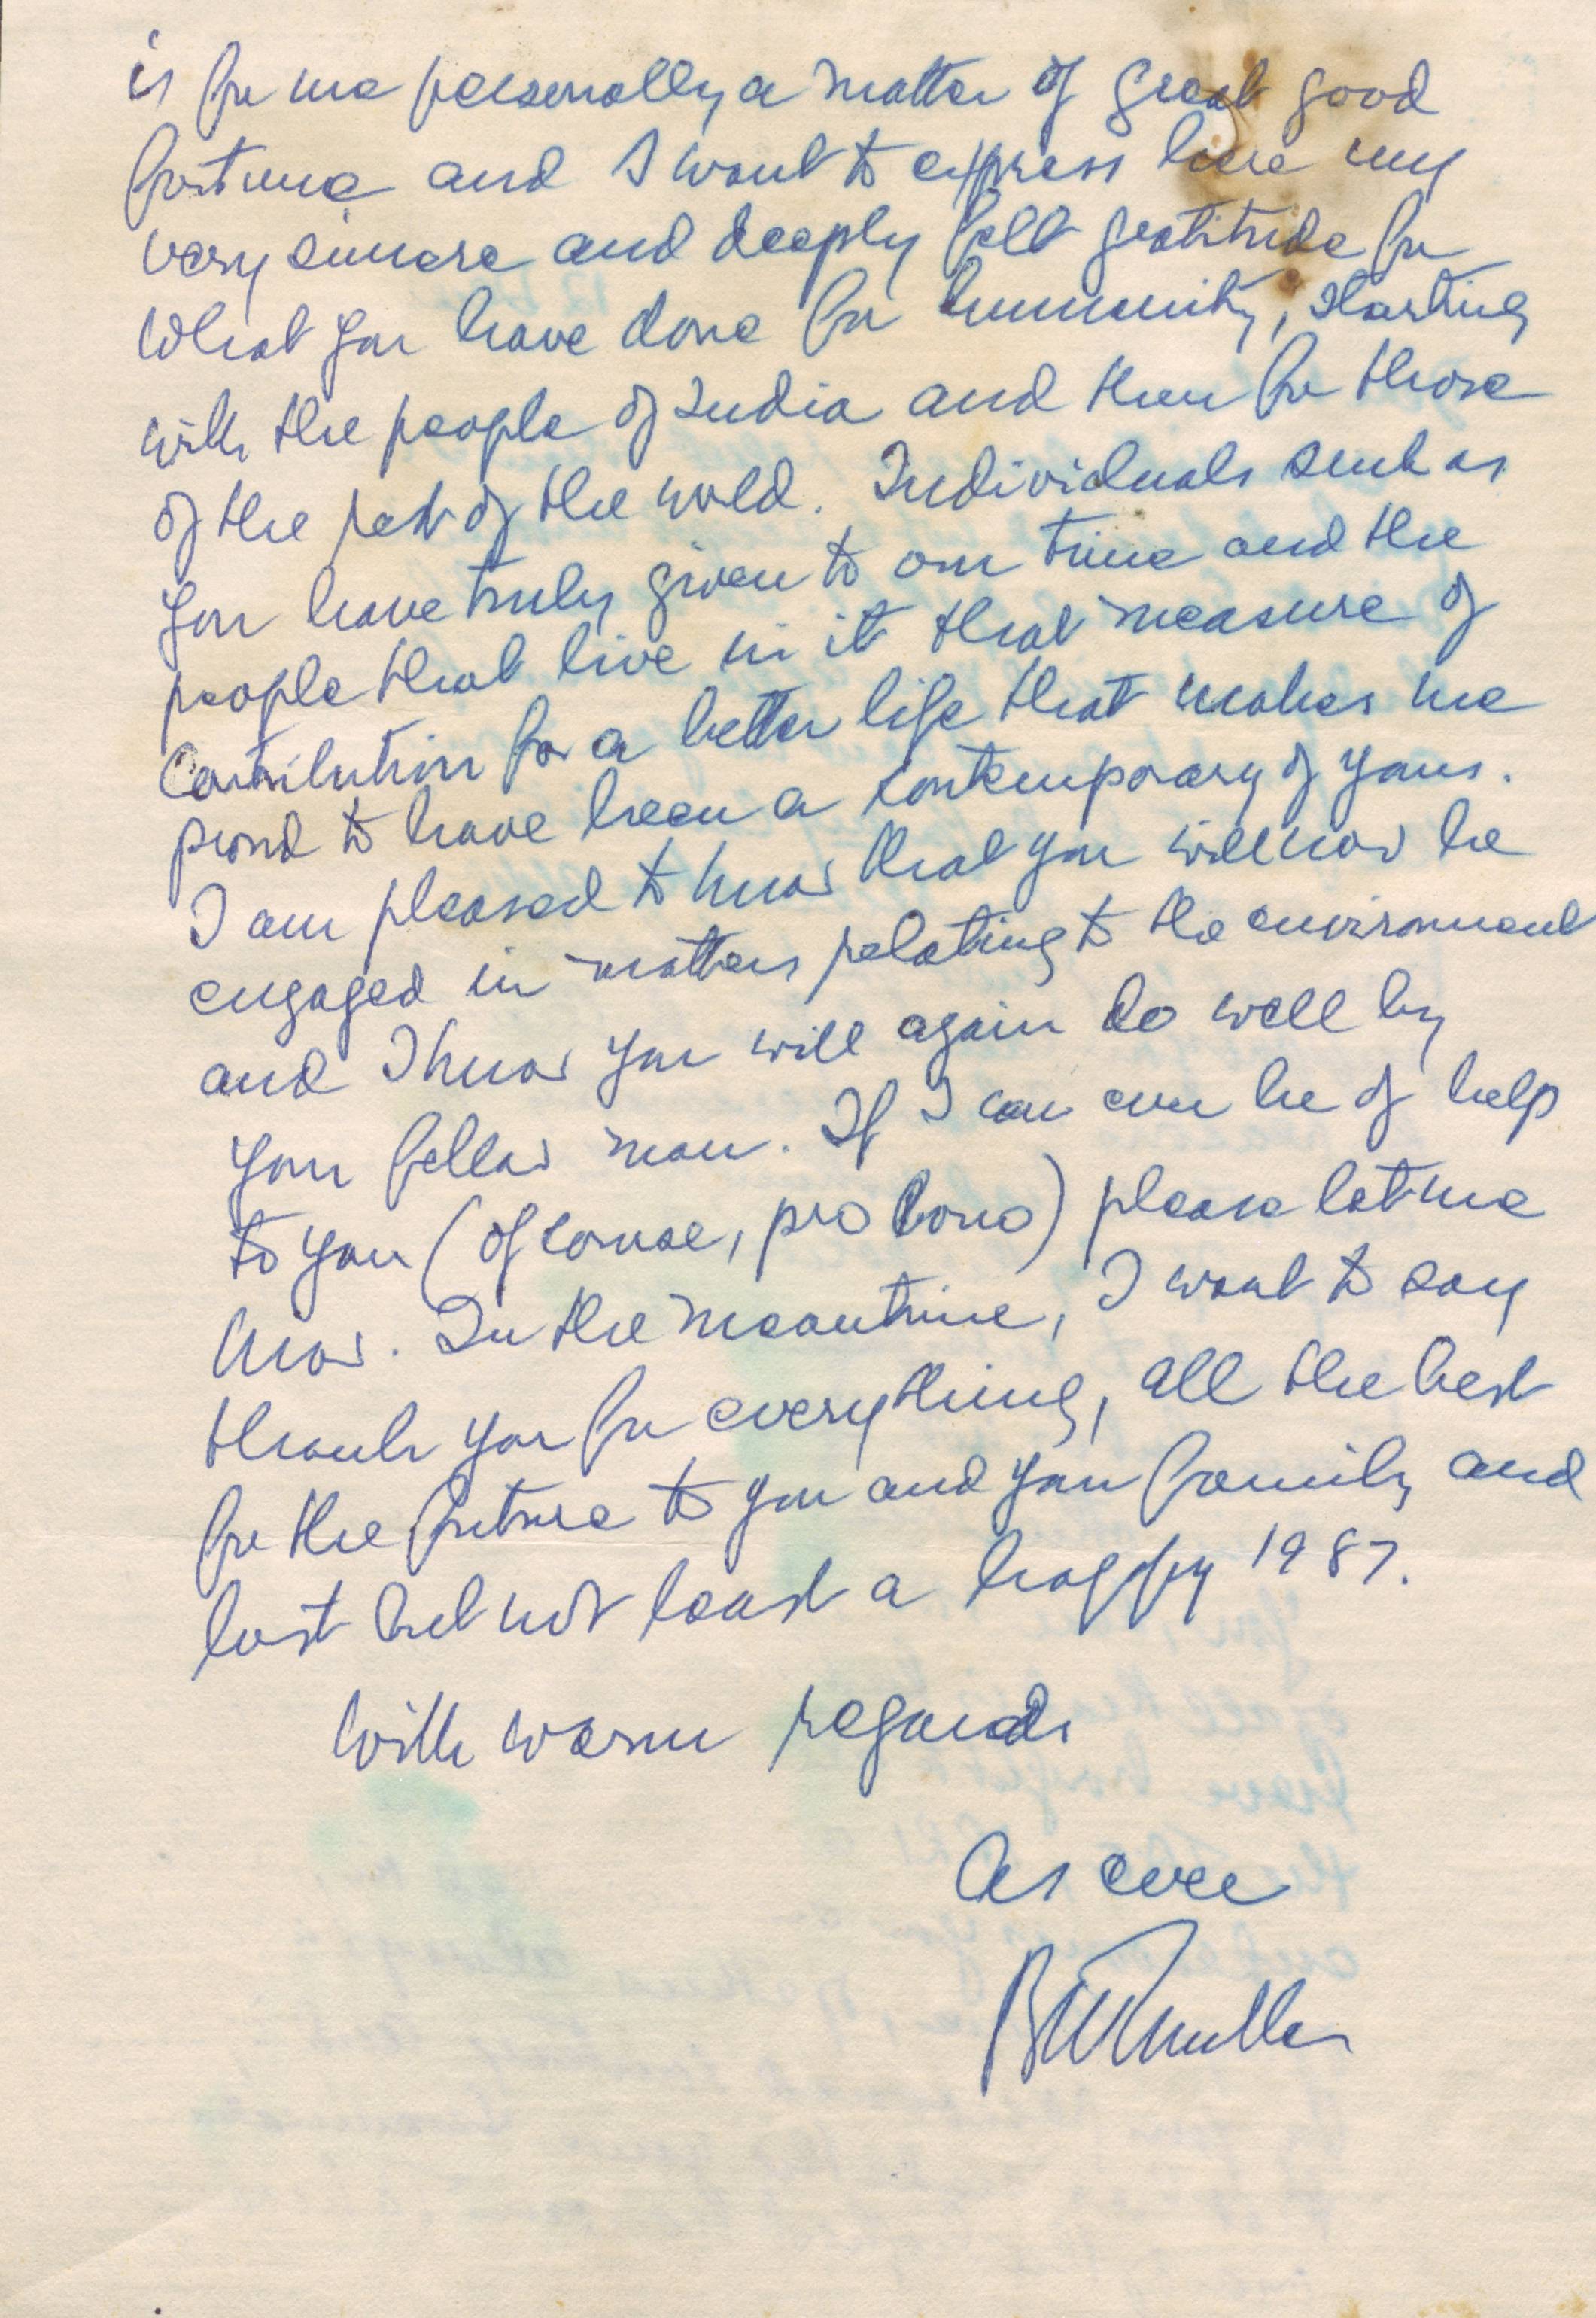 is for me personally a matter of great good
fortune and I want to express here my
very sincere and deeply felt gratitude for
what you have done for humanity, starting
with the people of India and then for those
of the rest of the world. Individuals such as
you have truly given to our time and the
people that live in it that measure of
contribution for a better life that makes me
proud to have been a contemporary of yours.
I am pleased to know that you will now be
engaged in matters relating to the environment
and I know you will again do well by
your fellow man. If I can ever be of help
to you (of course, pro bono) please let me
know. In the meantime, I want to say
thank you for everything, all the best
for the future to you and your family and
last but not least a happy 1987.
With warm regards
As ever